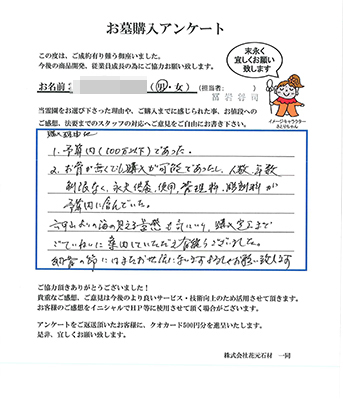 お墓購入アンケート
この度は、ご成約有り難う御座いました。
今後の商品開発、従業員成長の為にご協力お願い致します。
末永く
宜しくお願い
致します
お名前: (男・女) (担当者: 富岩啓司
イメージキャラクター
当霊園をお選び下さった理由や、ご購入までに感じられた事、お値段への
ご感想、法要までのスタッフの対応へご意見をご自由にお書き下さい。
購入理由は
1. 予算内(100万以下)であった。
2. お骨が無くても購入が可能であったし、人数、年数
制限なく、永代供養、使用、管理料、彫刻料が
予算内に含んでいた。
の海の見える景観も気に入り、購入完了まで
ていねいに案内していただき有難うございました。
納骨の節にはまたお世話になりますがよろしくお願い致します
ご協力頂きありがとうございました!
貴重なご感想、ご意見は今後のより良いサービス・技術向上のため活用させて頂きます。
お客様のご感想をイニシャルでHP等に使用させて頂く場合がございます。
アンケートをご返送頂いたお客様に、クオカード500円分を進呈いたします。
是非、宜しくお願い致します。
株式会社花元石材 一同